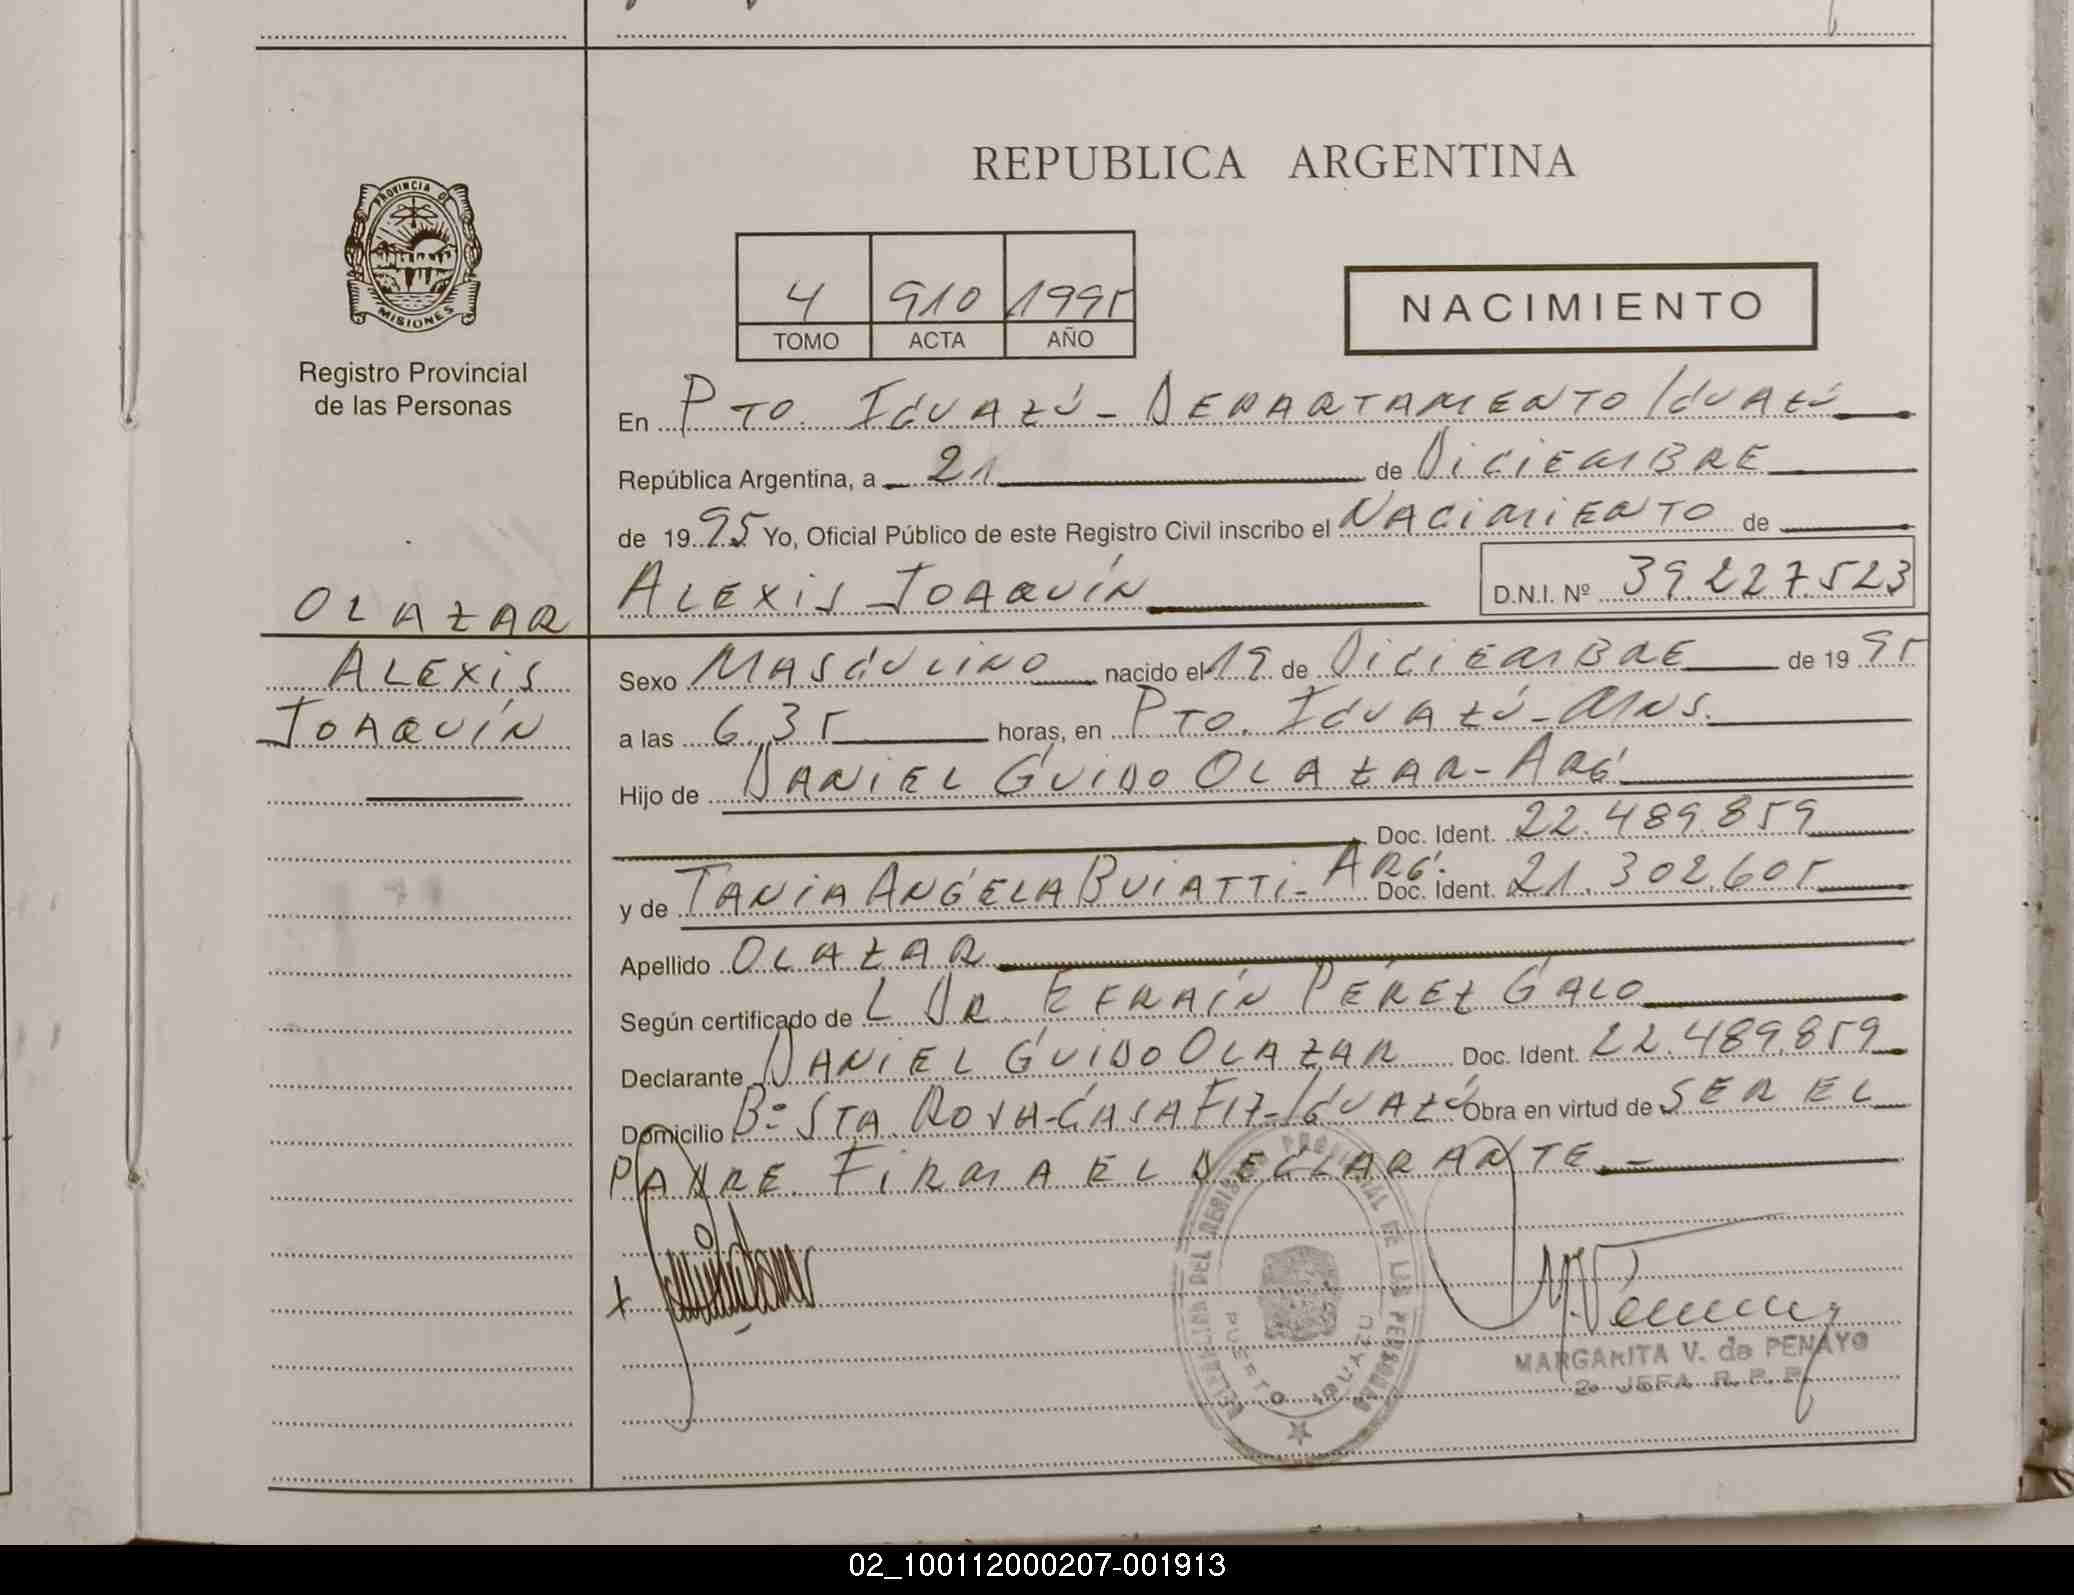 PROVINCIA DE
MISIONES
Registro Provincial
de las Personas
OLAZAR
ALEXIS
JOAQUÍN
REPUBLICA ARGENTINA
4 910 1995
TOMO ACTA AÑO
NACIMIENTO
En PTO. IGUAZÚ - DEPARTAMENTO IGUAZÚ
República Argentina, a 21 de DICIEMBRE
de 1995 Yo, Oficial Público de este Registro Civil inscribo el NACIMIENTO de
ALEXIS JOAQUÍN D.N.I. Nº 39.227.523
Sexo MASCULINO nacido el 19 de DICIEMBRE de 1995
a las 6.35 horas, en PTO. IGUAZÚ - MNS.
Hijo de DANIEL GUIDO OLAZAR - ARG
Doc. Ident. 22.489.859
y de TANIA ANGELA BUIATTI - ARG. Doc. Ident. 21.302.605
Apellido OLAZAR
Según certificado de L DR. EFRAÍN PÉREZ GALO
Declarante DANIEL GUIDO OLAZAR Doc. Ident. 22.489.859
Domicilio Bº STA. ROSA - CASA F17 - IGUAZÚ Obra en virtud de SER EL
PADRE. FIRMA EL DECLARANTE. -
PROVINCIAL DE LAS PERSONAS
PUERTO IGUAZU
MARGARITA V. de PENAYO
2º JEFA R. P. P.
02_100112000207-001913